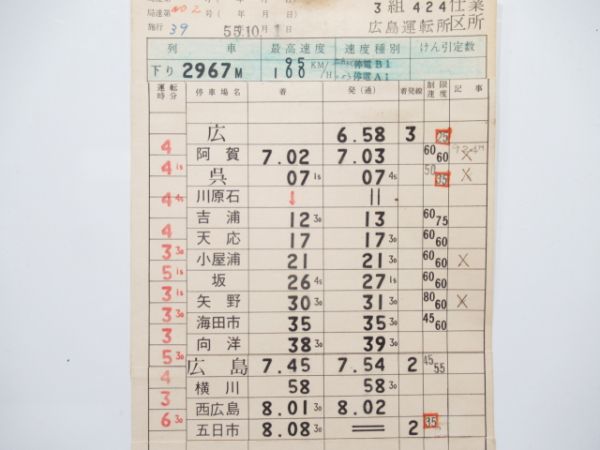 3 組 424 仕業
局達第 402 号 ( 年 月 日)
施行 39 55.10 1 日 広島運転所 区所
列車 最高速度 速度種別 けん引定数
下り 2967M 95 100 KM/H 停電B1 停電A1
運転時分 停車場名 着 発(通) 着発線 制限速度 記事
広 6.58 3 25
4 阿賀 7.02 7.03 60 60 ×
4 1s 呉 07 1s 07 4s 50 35 ×
川原石 ↓ ||
4 4s 吉浦 12 30 13 60 75
4 天応 17 17 30 60 60
3 30 小屋浦 21 21 30 60 60 ×
5 1s 坂 26 4s 27 1s 60 60
3 1s 矢野 30 30 31 30 80 60 ×
3 30 海田市 35 35 30 45 60
3 向洋 38 30 39 30
5 30 広島 7.45 7.54 2 45 55
4 横川 58 58 30
3 西広島 8.01 30 8.02
6 30 五日市 8.08 30 2 35